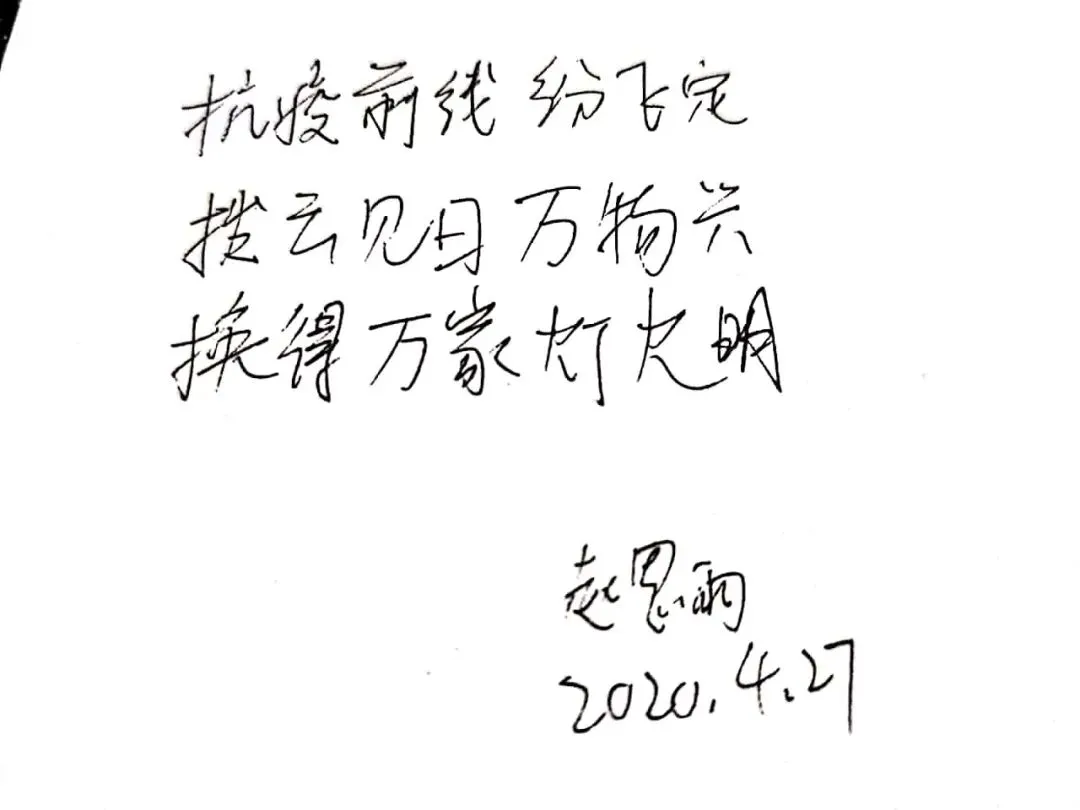 抗疫前线纷飞定
拨云见日万物兴
换得万家灯火明
赵思雨
2020.4.27